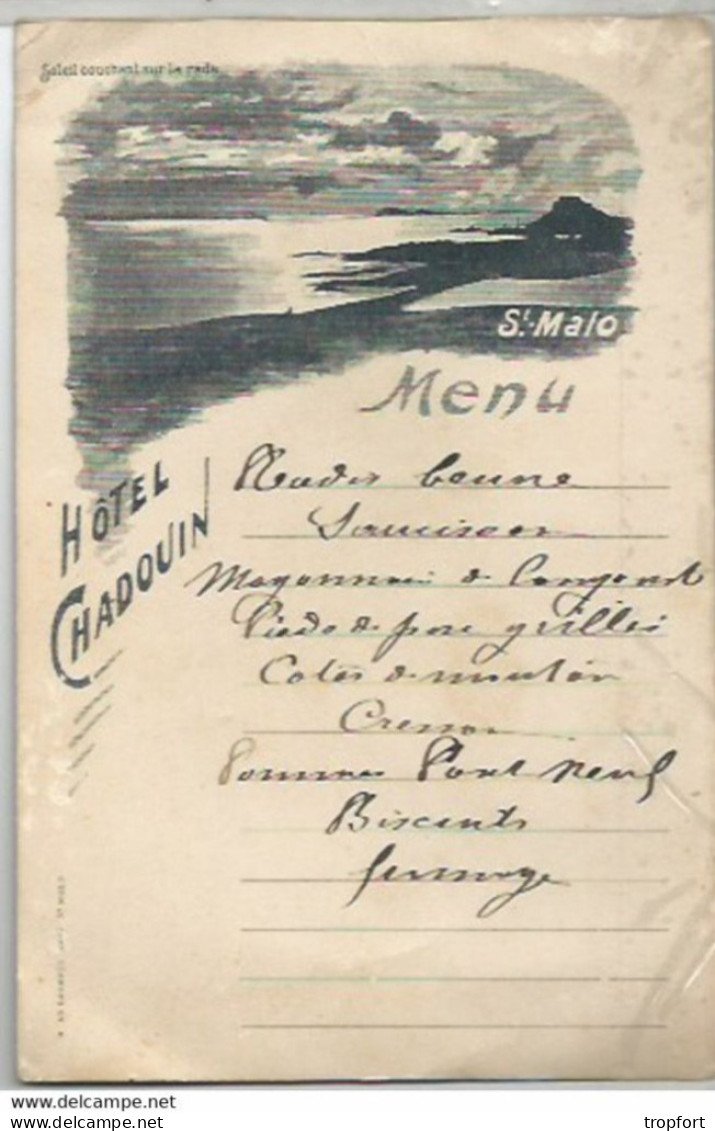 Soleil couchant sur la rade
St-Malo
Menu
HÔTEL
CHADOUIN
Radis beurre
Saucisson
Mayonnaise de langouste
Pieds de porc grillés
Cotes de mouton
Cresson
Pommes Pont Neuf
Biscuits
fromage
www.delcampe.net
tropfort